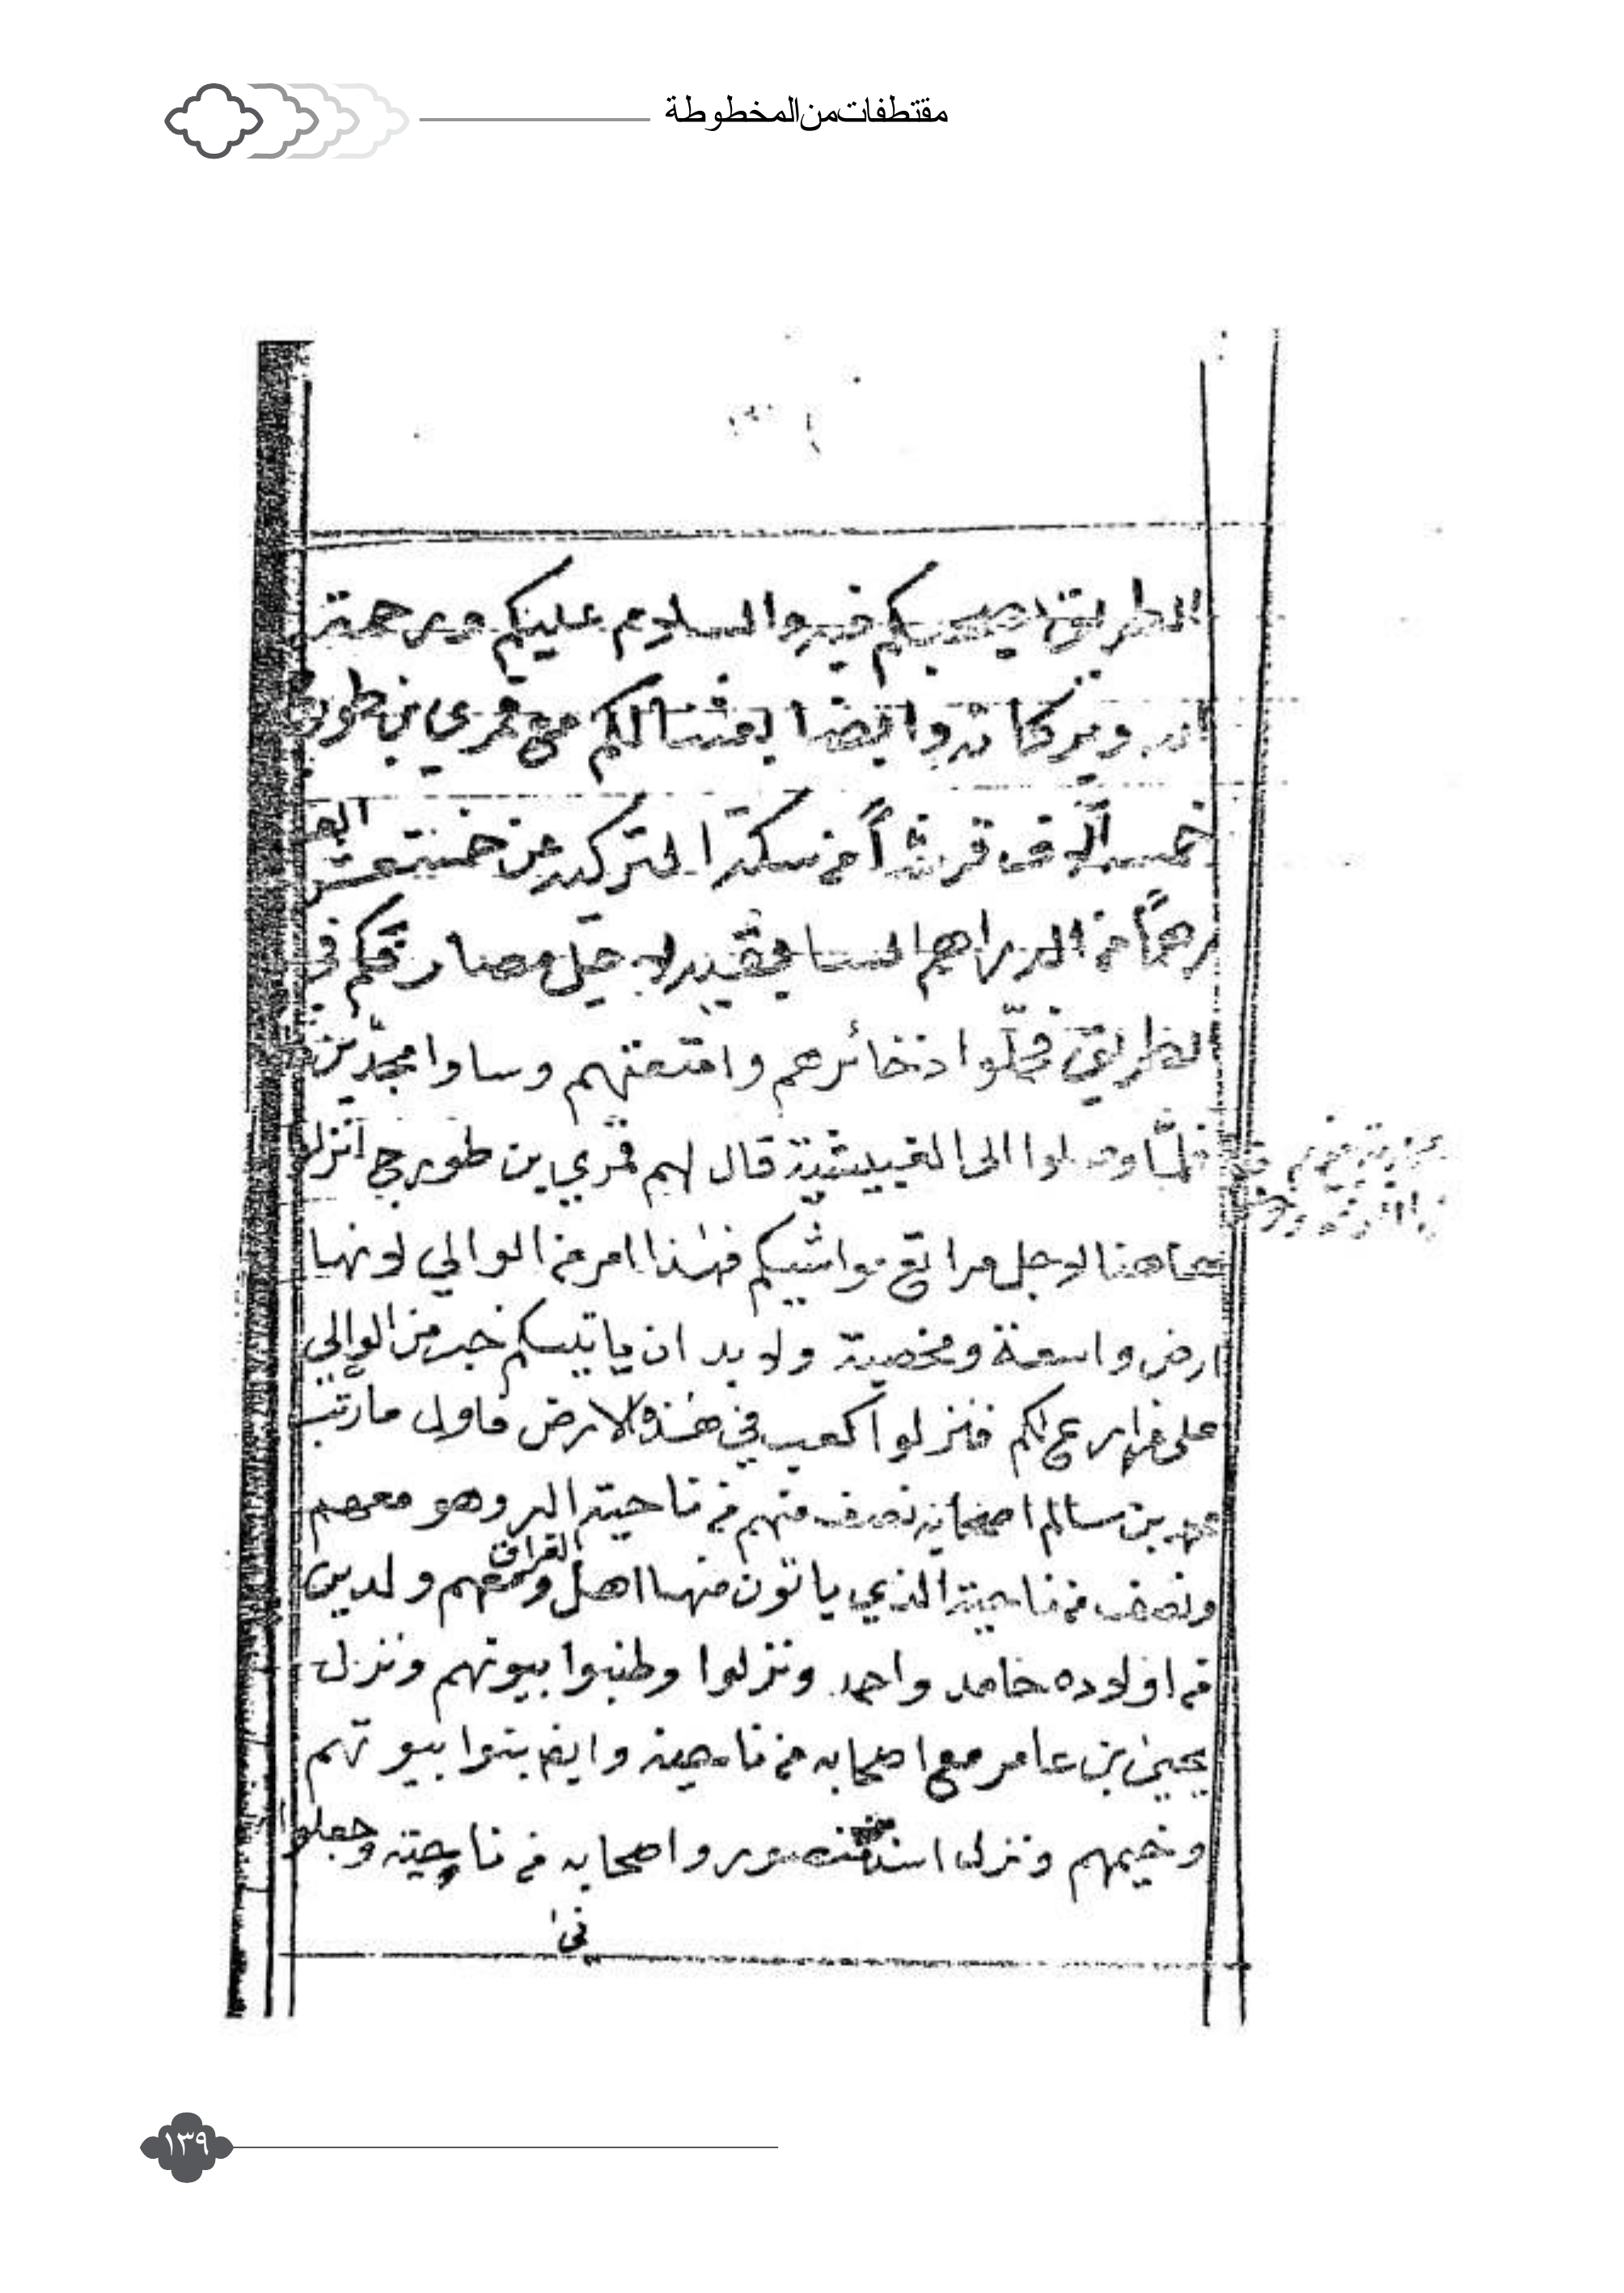 مقتطفات من المخطوطة
الطريق فيه والسلام عليكم ورحمة
الله وبركاته وايضا لكم مع قمري بن طورج
خمسة آلاف قرشاً من سكة التركيه عن خمسة عشر الف
درهماً من الدراهم لاجل مصارفكم في
الطريق فحمّلوا ذخائرهم وامتعتهم وساروا مجدّين
فلمّا وصلوا الى القبيشية قال لهم قمري بن طورج انزلوا
هاهنا لاجل مراتع مواشيكم فهذا امر من الوالي لانها
ارض واسعة ومخصبة ولا بد ان ياتيكم خبر من الوالي
على لكم فنزلوا كعب في هذه الارض فاول ما رتب
بن سالم اصحابه نصف منهم من ناحية البر وهو معهم
ونصف من ناحية الذي ياتون منها اهل العراق ومعهم ولدين
من اولاده حامد واحمد ونزلوا وطنبوا بيوتهم ونزل
يحيى بن عامر مع اصحابه من ناحية وايضا بنوا بيوتهم
وخيمهم ونزل منصور واصحابه من ناحية وجعلوا
في
١٣٩